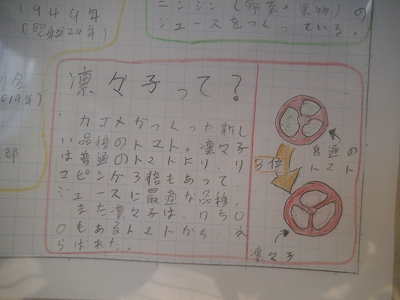 1949年
(昭和24年)
ニンジン(野菜。果物)の
ジュースをつくっている。
凛々子って?
カゴメがつくった新し
い品種のトマト。凛々子
は普通のトマトより、リ
コピンが3倍もあって、
ジュースに最適な品種。
また凛々子は、7550
0もあるトマトから、え
らばれた。
普通の
トマト
3倍
凛々子
年)
部